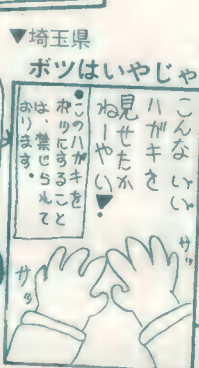 ▼埼玉県
ボツはいやじゃ
こんな いい
ハガキを
見せたか
ねーやい▼
●このハガキを
ボツにすること
は、禁じられて
おります。
サッ
サッ